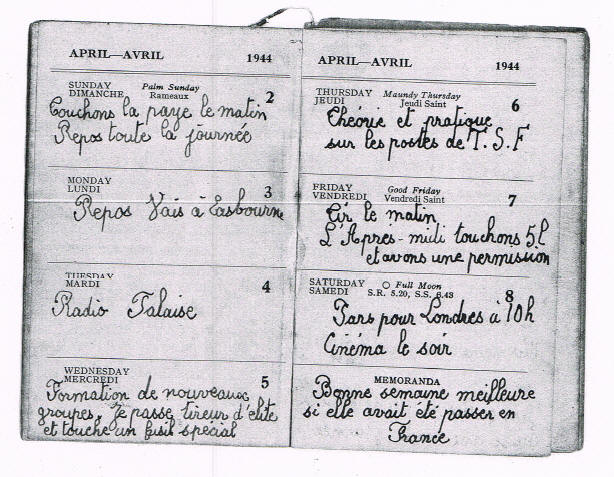 APRIL—AVRIL 1944
SUNDAY Palm Sunday
DIMANCHE Rameaux 2
Couchons la paye le matin
Repos toute la journée
MONDAY
LUNDI 3
Repos Vais à Easbourne
TUESDAY
MARDI 4
Radio Falaise
WEDNESDAY
MERCREDI 5
Formation de nouveaux
groupes. Je passe tireur d'élite
et touche un fusil spécial
APRIL—AVRIL 1944
THURSDAY Maundy Thursday
JEUDI Jeudi Saint 6
Théorie et pratique
sur les postes de T.S.F
FRIDAY Good Friday
VENDREDI Vendredi Saint 7
Tir le matin
L'Après-midi touchons 5£
et avons une permission
SATURDAY Full Moon
SAMEDI S.R. 5.20, S.S. 6.43 8
Pars pour Londres à 10h
Cinéma le soir
MEMORANDA
Bonne semaine meilleure
si elle avait été passer en
France